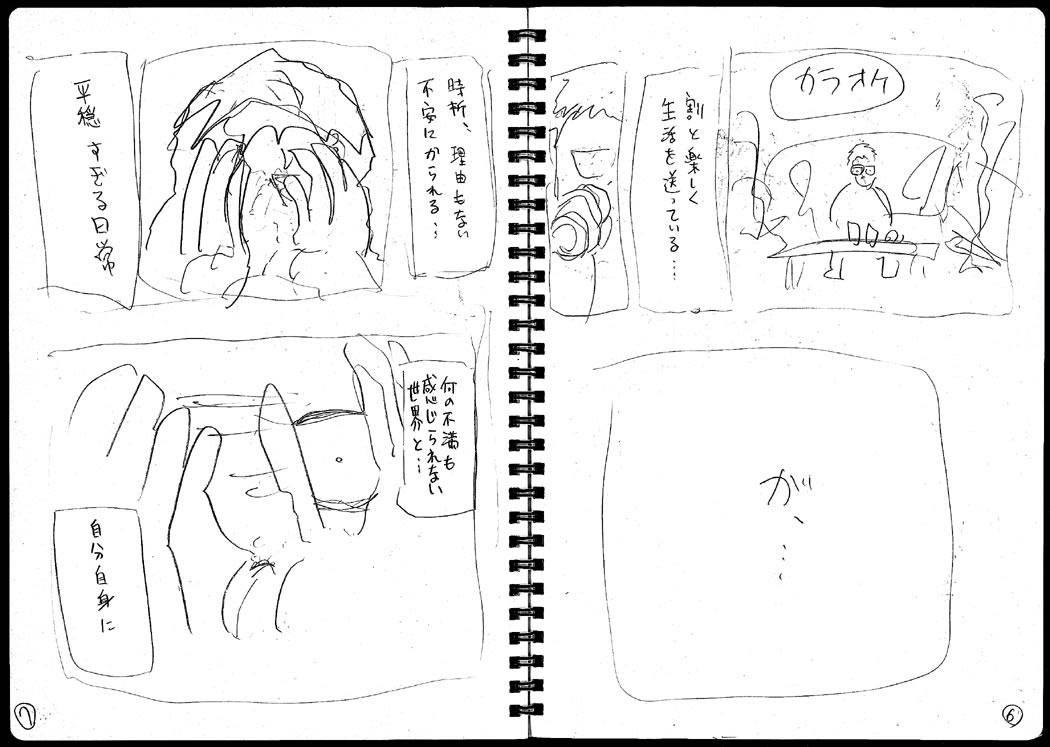 カラオケ
割と楽しく
生活を送っている…
が、…
⑥
時折、理由もない
不安にかられる…
平穏すぎる日常
何の不満も
感じられない
世界と…
自分自身に
⑦